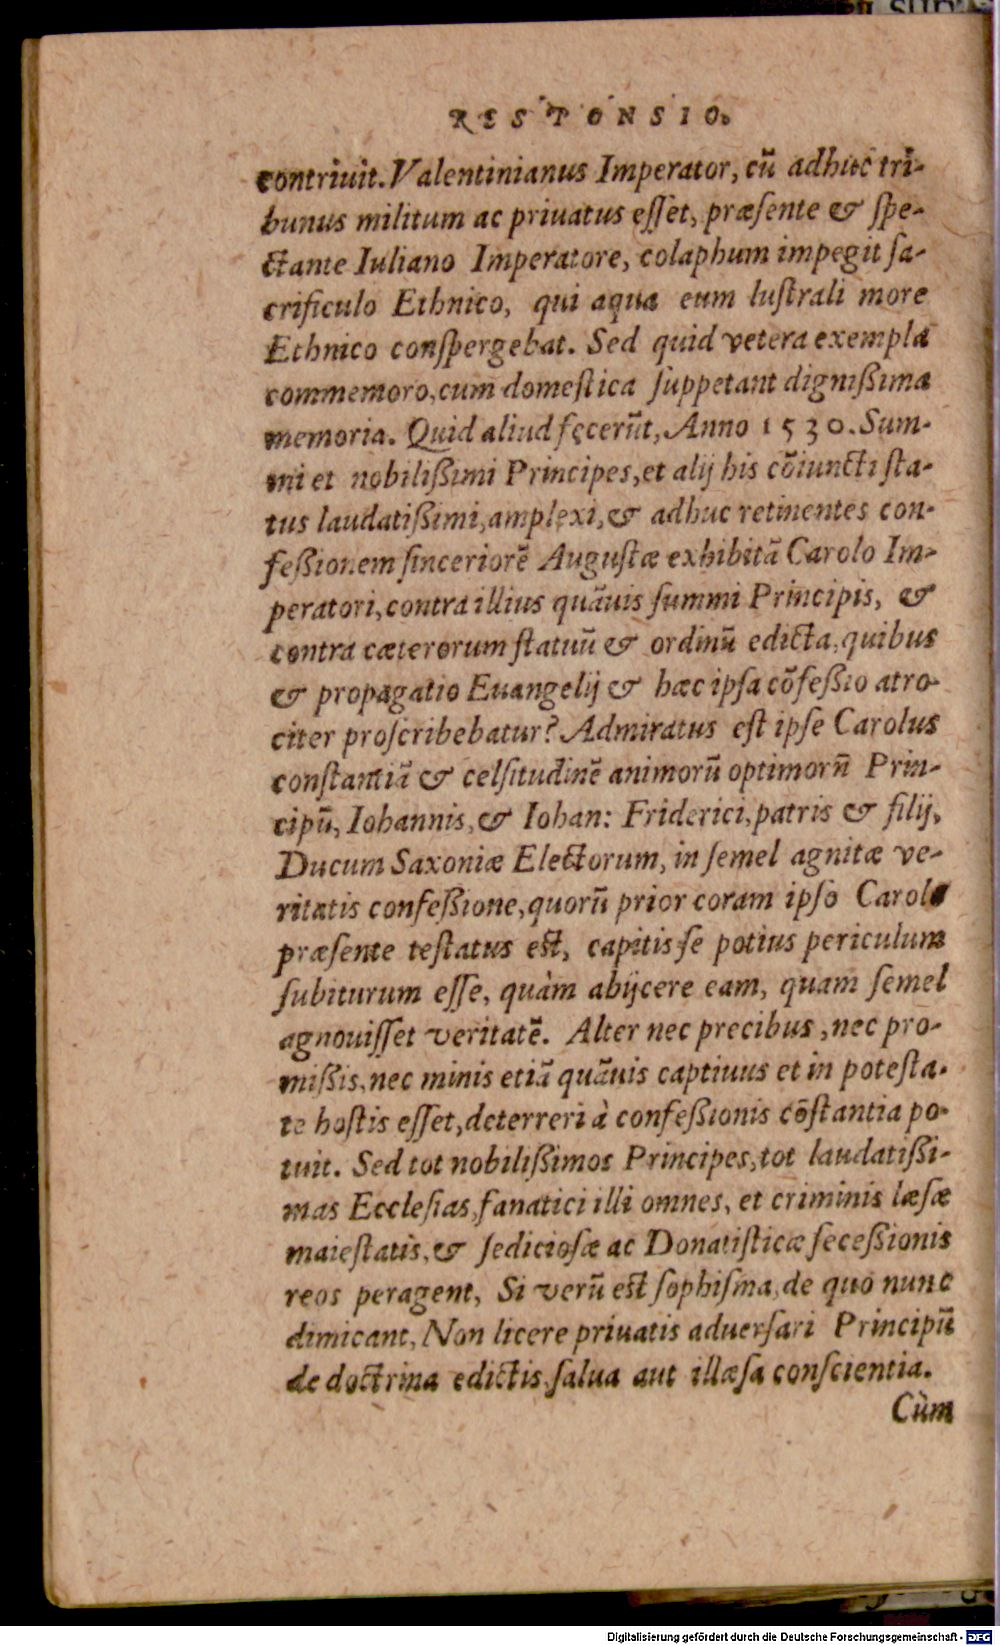 RESPONSIO.
contriuit. Valentinianus Imperator, cū adhuc tri-
bunus militum ac priuatus eſſet, præſente & ſpe-
ctante Iuliano Imperatore, colaphum impegit ſa-
crificulo Ethnico, qui aqua eum luſtrali more
Ethnico conſpergebat. Sed quid vetera exempla
commemoro, cum domeſtica ſuppetant digniſsima
memoria. Quid aliud fęcerūt, Anno 1530. Sum-
mi et nobiliſsimi Principes, et alij his cōiuncti ſta-
tus laudatiſsimi, amplexi, & adhuc retinentes con-
feſsionem ſinceriorē Auguſtæ exhibitā Carolo Im-
peratori, contra illius quāuis ſummi Principis, &
contra cæterorum ſtatuū & ordinū edicta, quibus
& propagatio Euangelij & hæc ipſa cōfeſsio atro-
citer proſcribebatur? Admiratus eſt ipſe Carolus
conſtantiā & celſitudinē animorū optimorū Prin-
cipū, Iohannis, & Iohan: Friderici, patris & filij,
Ducum Saxoniæ Electorum, in ſemel agnitæ ve-
ritatis confeſsione, quorū prior coram ipſo Carolo
præſente teſtatus eſt, capitis ſe potius periculum
ſubiturum eſſe, quàm abijcere eam, quam ſemel
agnouiſſet veritatē. Alter nec precibus, nec pro-
miſsis, nec minis etiā quāuis captiuus et in poteſta-
te hoſtis eſſet, deterreri à confeſsionis cōſtantia po-
tuit. Sed tot nobiliſsimos Principes, tot laudatiſsi-
mas Eccleſias, fanatici illi omnes, et criminis læſæ
maieſtatis, & ſedicioſæ ac Donatiſticæ ſeceſsionis
reos peragent, Si verū eſt ſophiſma, de quo nunc
dimicant, Non licere priuatis aduerſari Principū
de doctrina edictis, ſalua aut illæſa conſcientia.
Cùm
Digitalisierung gefördert durch die Deutsche Forschungsgemeinschaft - DFG